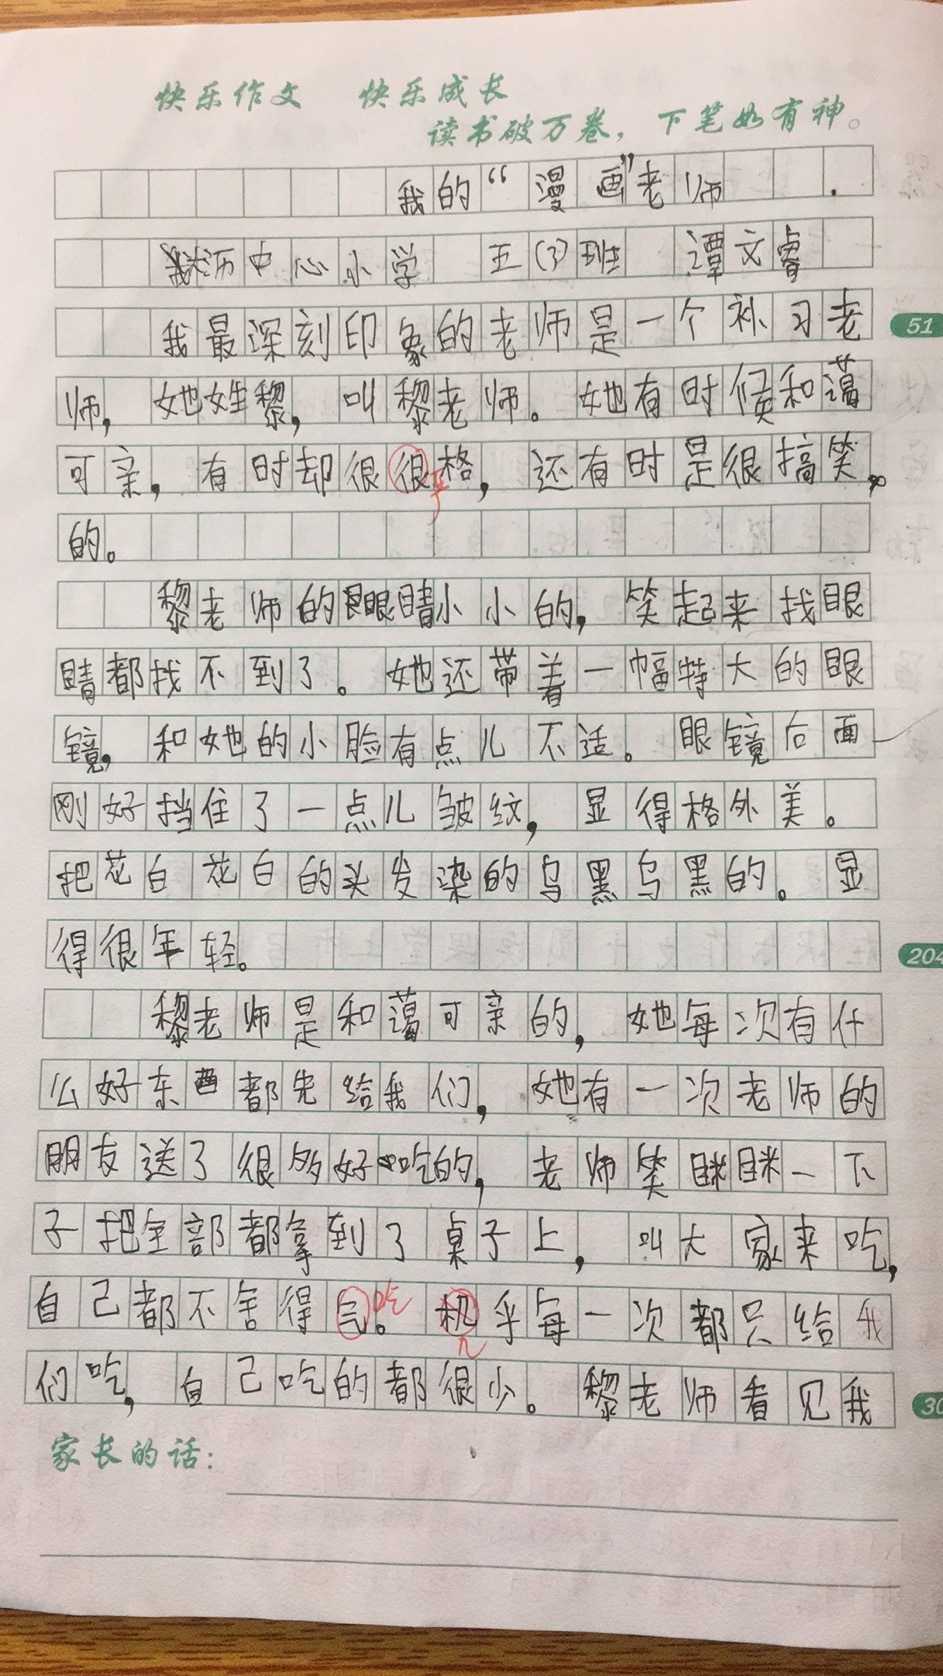 快乐作文 快乐成长
读书破万卷，下笔如有神。
我的“漫画”老师
沥中心小学 五(3)班 谭文睿
我最深刻印象的老师是一个补习老
51
师，她姓黎，叫黎老师。她有时候和蔼
可亲，有时却很很格，还有时是很搞笑
严
的。
黎老师的眼睛小小的，笑起来找眼
睛都找不到了。她还带着一幅特大的眼
镜，和她的小脸有点儿不适。眼镜后面
刚好挡住了一点儿皱纹，显得格外美。
把花白花白的头发染的乌黑乌黑的。显
得很年轻。
204
黎老师是和蔼可亲的，她每次有什
么好东西都先给我们，她有一次老师的
朋友送了很多好吃的，老师笑眯眯一下
子把全部都拿到了桌子上，叫大家来吃，
自己都不舍得气。吃机乎每一次都只给我
几
们吃，自己吃的都很少。黎老师看见我
30
家长的话：